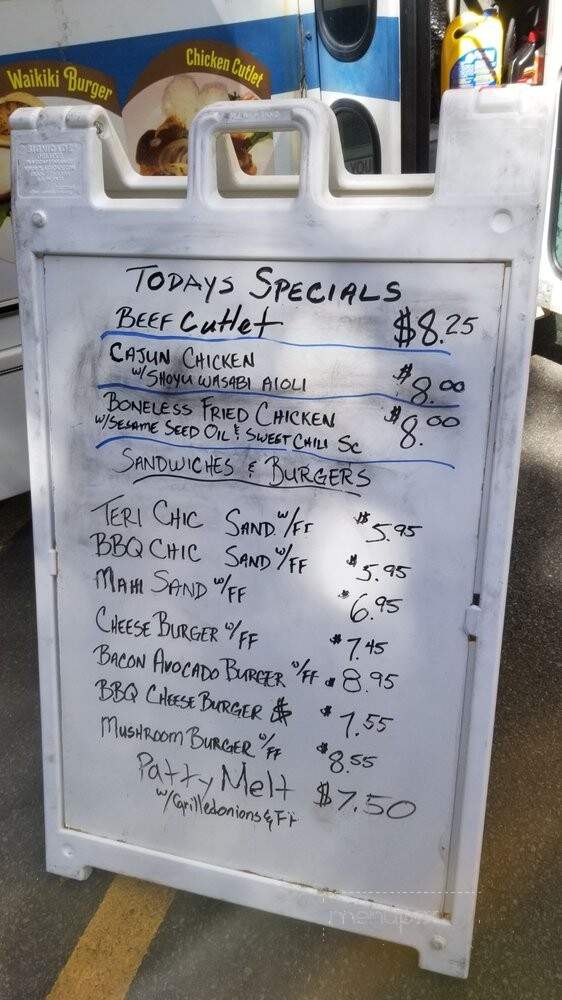 Waikiki Burger
Chicken Cutlet
TODAYS SPECIALS
BEEF Cutlet $8.25
CAJUN CHICKEN
W/SHOYU WASABI AIOLI $8.00
BONELESS FRIED CHICKEN $8.00
W/SESAME SEED OIL & SWEET CHILI SC
SANDWICHES & BURGERS
TERI CHIC SAND. W/FF $5.95
BBQ CHIC SAND W/FF $5.95
MAHI SAND W/FF $6.95
CHEESE BURGER W/FF $7.45
BACON AVOCADO BURGER W/FF $8.95
BBQ CHEESE BURGER $7.55
MUSHROOM BURGER W/FF $8.55
Patty Melt $7.50
W/Grilledonions & FF